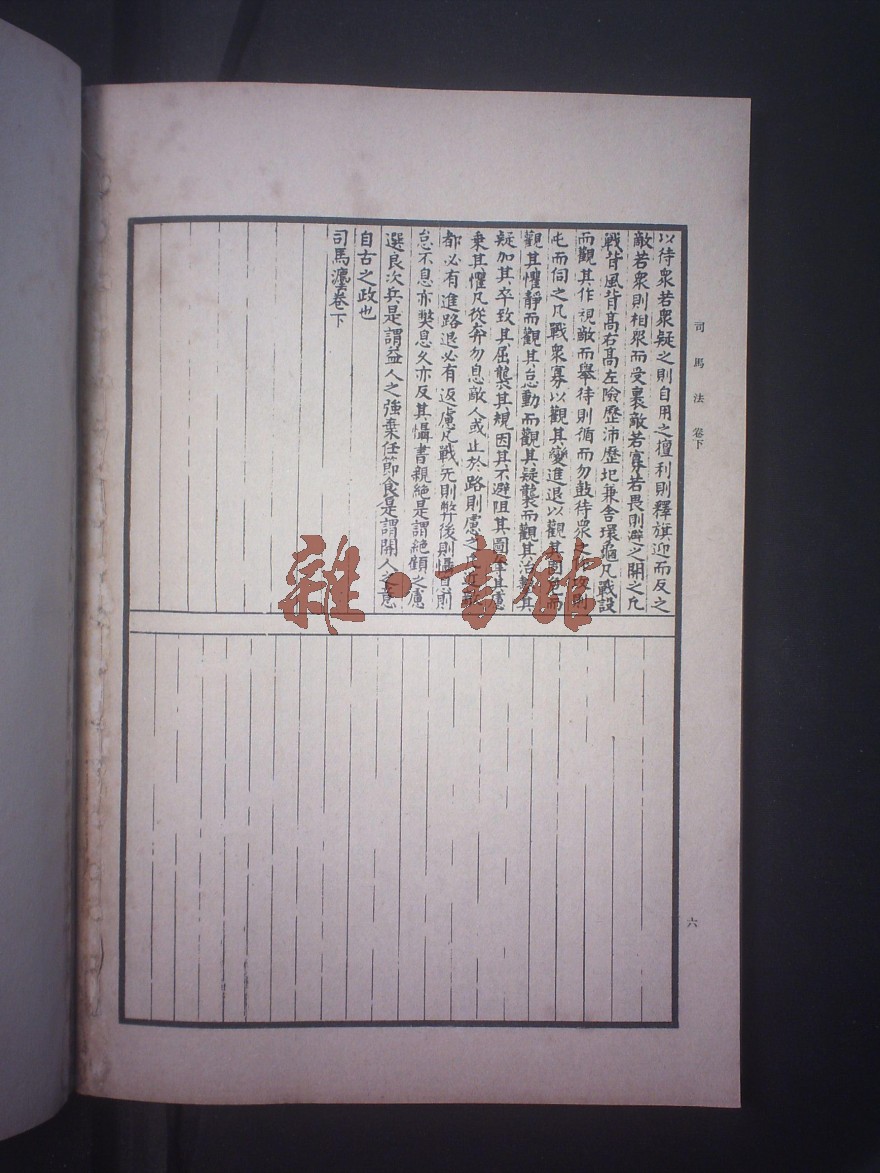 司馬法 卷下
以待衆若衆疑之則自用之擅利則釋旗迎而反之
敵若衆則相衆而受裹敵若寡若畏則避之開之凡
戰背風背高右高左險歷沛歷圮兼舍環龜凡戰設
而觀其作視敵而舉待則循而勿鼓待衆之作攻則
屯而伺之凡戰衆寡以觀其變進退以觀其固危而
觀其懼靜而觀其怠動而觀其疑襲而觀其治擊其
疑加其卒致其屈襲其規因其不避阻其圖奪其慮
乗其懼凡從奔勿息敵人或止於路則慮之凡近敵
都必有進路退必有返慮凡戰先則弊後則懾息則
怠不息亦獘息久亦反其懾書親絶是謂絶顧之慮
選良次兵是謂益人之強棄任節食是謂開人之意
自古之政也
司馬灋卷下
六
雜·書館